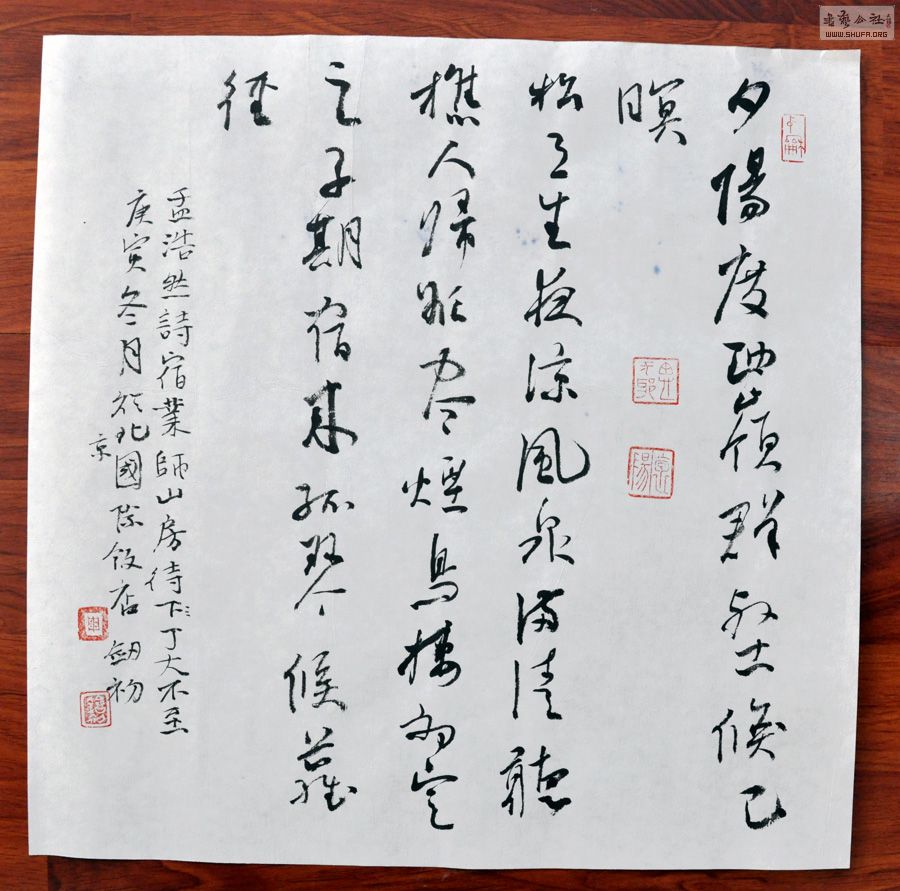 夕陽度西嶺群壑倏已
暝
松月生夜涼風泉滿清聽
樵人歸欲盡煙鳥棲初定
之子期宿來孤琴候蘿
徑
孟浩然詩宿業師山房待下丁大不至
庚寅冬月於北國際飯店 劍初
京
書藝公社
WWW.SHUFA.ORG